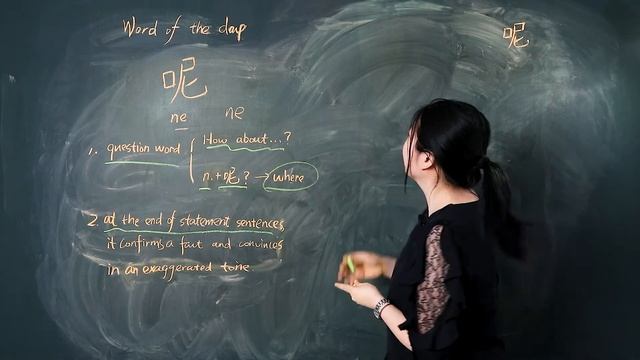 Word of the day
呢
呢
ne ne
1. question word { How about...?
n.+呢? → where
2. at the end of statement sentences,
it confirms a fact and convinces
in an exaggerated tone.